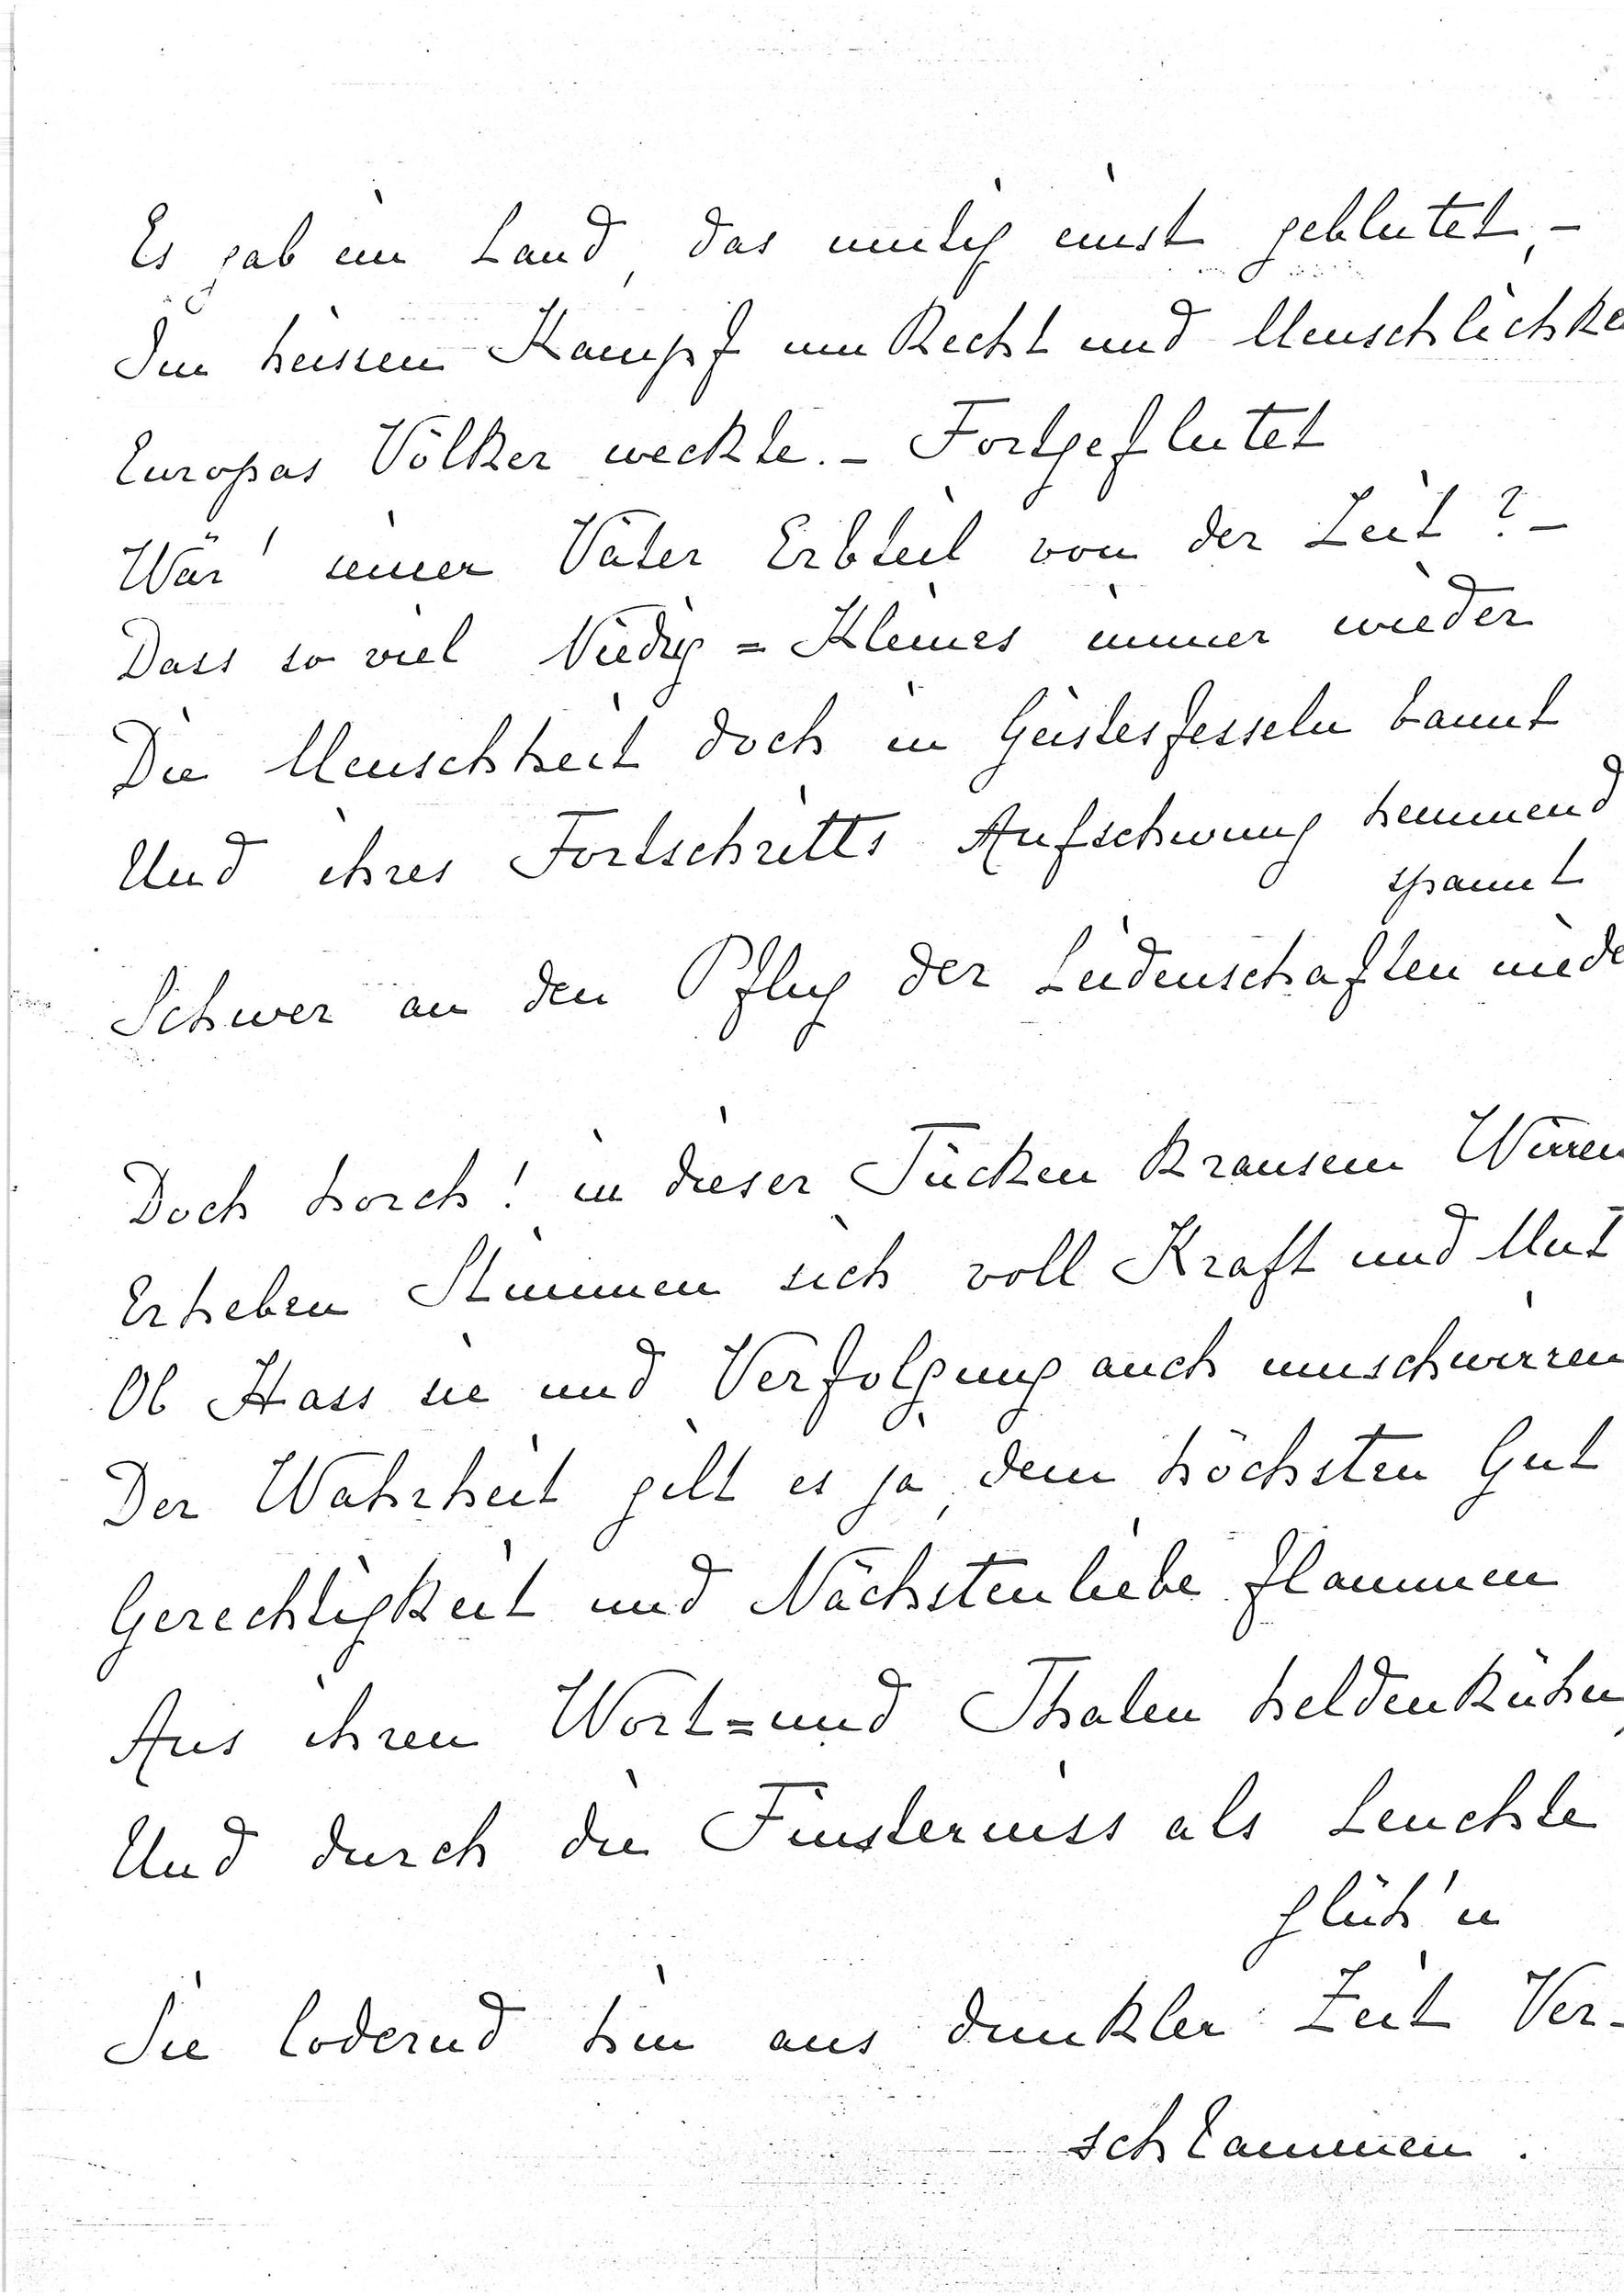 Es gab ein Land, das mutig einst geblutet, –
Im heissen Kampf um Recht und Menschlichke
Europas Völker weckte. – Fortgeflutet
Wär' seiner Väter Erbteil von der Zeit? –
Dass so viel Niedrig = Kleines immer wieder
Die Menschheit doch in Geistesfesseln bannt
Und ihres Fortschritts Aufschwung hemmend
spannt
Schwer an den Pflug der Leidenschaften niede
Doch horch! in dieser Tücken krausem Wirren
Erheben Stimmen sich voll Kraft und Mut
Ob Hass sie und Verfolgung auch umschwirren
Der Wahrheit gilt es ja, dem höchsten Gut
Gerechtigkeit und Nächstenliebe flammen
Aus ihren Wort= und Thaten heldenkühn,
Und durch die Finsterniss als Leuchte
glüh'n
Sie lodernd hin aus dunkler Zeit Ver-
schlammen.